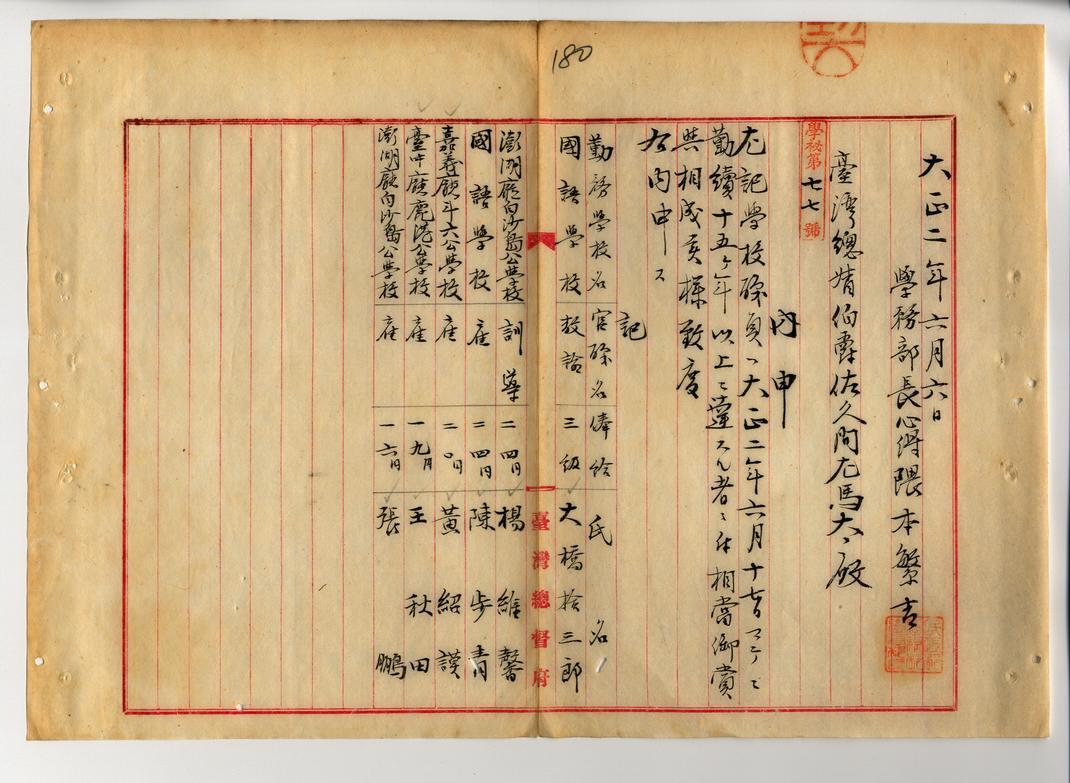 180
大正二年六月六日
學務部長心得隈本繁吉
臺灣總督伯爵佐久間左馬太殿
學秘第七七號
內申
左記學校職員ハ大正二年六月十七日マテニ
勤續十五ケ年以上ニ達スル者ニ付相當御賞
與相成度樣致度
右內申ス
記
勤務學校名 官職名 俸給 氏名
國語學校 教諭 三級 大橋捨三郎
臺灣總督府
澎湖廳白沙島公學校 訓導 二四円 楊維馨
國語學校 雇 二四円 陳步青
嘉義廳斗六公學校 雇 二〇円 黃紹謨
臺中廳鹿港公學校 雇 一九円 王秋田
澎湖廳白沙島公學校 雇 一六円 張鵬